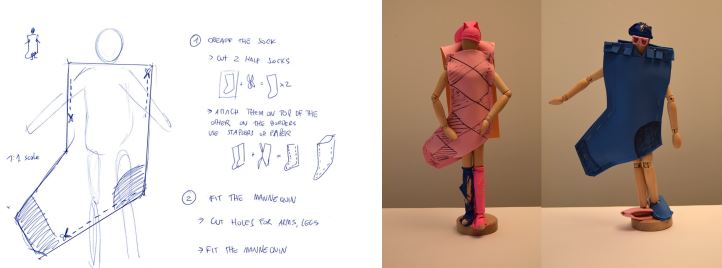 1 CREATE THE SOCK
> CUT 2 HALF SOCKS
+ = x2
> ATTACH THEM ON TOP OF THE
OTHER ON THE BORDERS
USE STAPLERS OR PAPER
+ =
1:1 scale
2 FIT THE MANNEQUIN
> CUT HOLES FOR ARMS, LEGS
> FIT THE MANNEQUIN